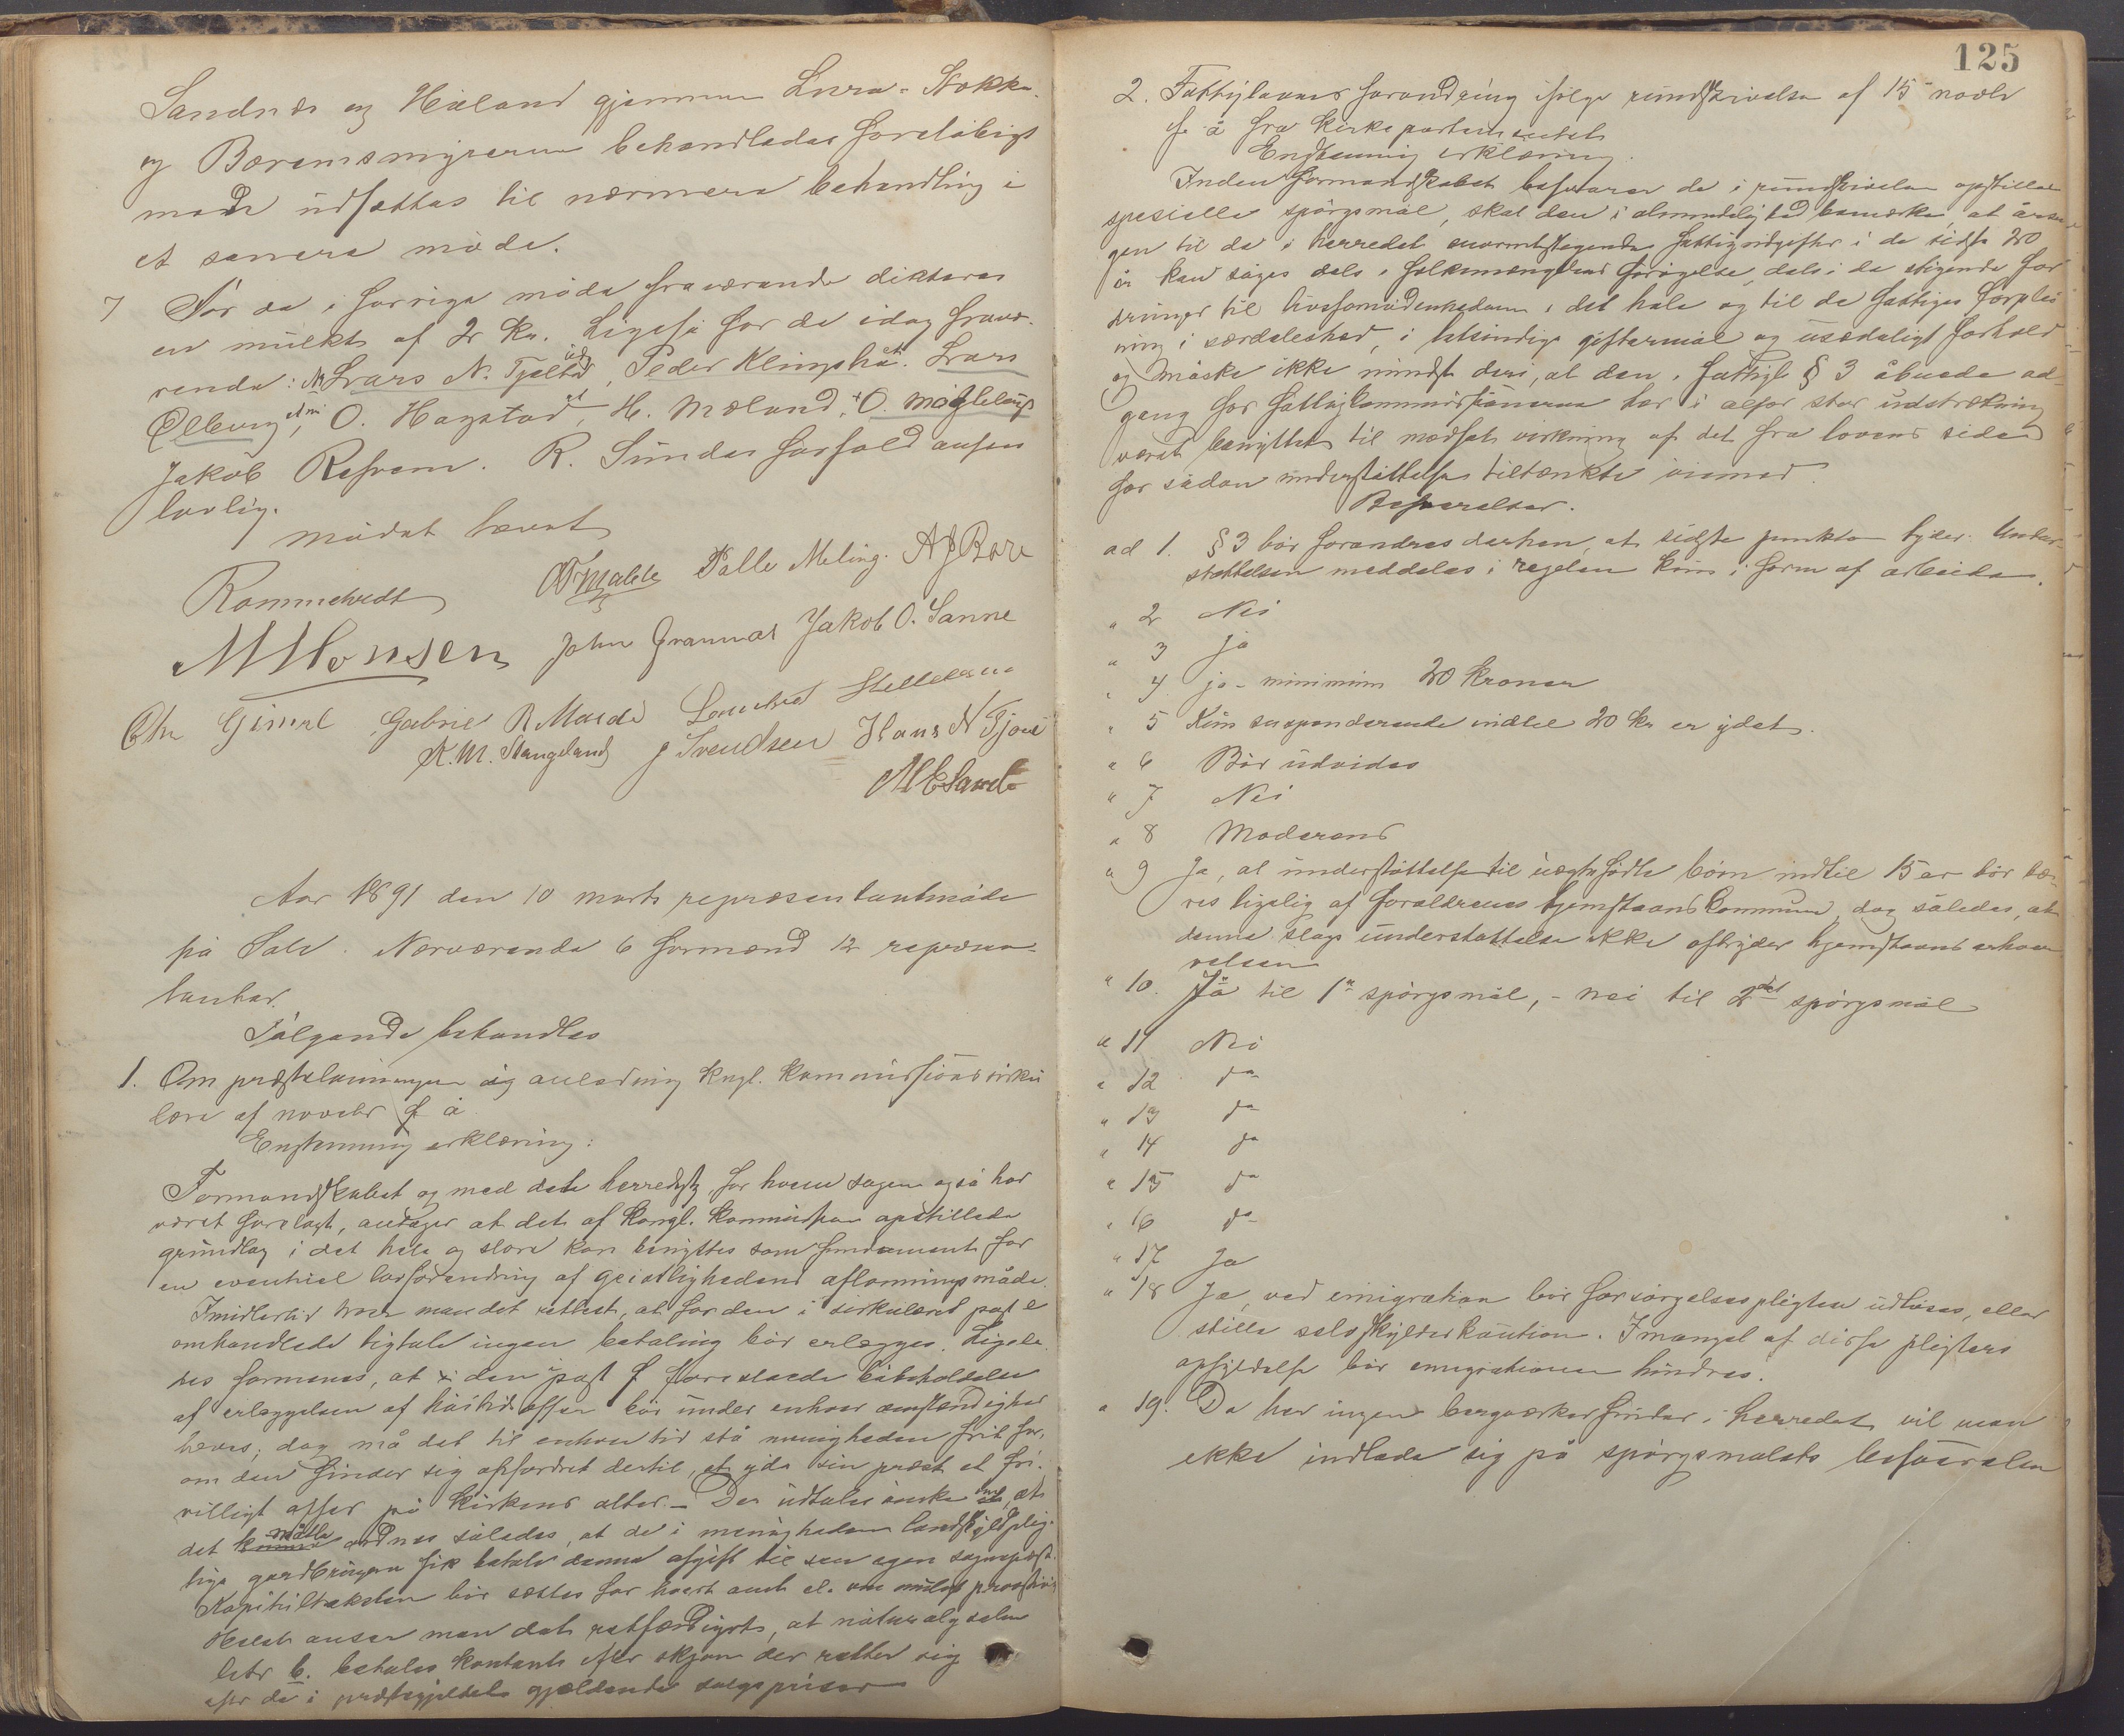 Sandnes og Høiland gjennem Lura - Stokke-
og Bærumsmyrerne behandledes foreløbigt
men udsættes til nærmere behandling i
et senere møde.
7 For de i forrige møde fraværende dikteres
en mulkt af 2 kr. Ligeså for de idag fravæ-
rende: Lars N. Tjeltad, Peder Klingshei. Lars
Ølberg, O. Hogstad, H. Mæland, O. Målelaug
Jakob Refsnes. R. Sundes forfald ansees
lovlig.
Mødet hævet
Rommetvedt OTMalde Palle Meling. AGBore
MMonsen John Grannes Jakob O. Sanne
Chr Gimre Gabriel R Maade Lauritz Stellesen
K. M. Stangeland J Svendsen Hans N Tjore
MESande
Aar 1891 den 10 marts repræsentantmøde
på Sole. Nærværende 6 formænd 12 repræsen-
tanter.
Følgende behandles
1. Om præstelønningen i anledning kngl. kommissions sirku
lære af novebr f å
Enstemmig erklæring:
Formandskabet og med dets herredsty for hvem sagen også har
været forelagt, antager at det af kongl. kommission opstillede
grundlag i det hele og store kan benyttes som fundament for
en eventuel lovforandring af geistlighedens aflønningsmåde.
Imidlertid tror man det rettest, at for den i sirkulæret post e
omhandlede ligtale ingen betaling bør erlægges. Ligele-
des formenes, at i den post f foreslaaede bibeholdelse
af erlæggelsen af høitidsoffer bør under enhver omstændighed
hæves; dog må det til enhver tid stå menigheden frit for,
om den finder sig opfordret dertil, at yde sin præst et fri-
villigt offer på kirkens alter. – Der udtales ønske om, at
det kunne måtte ordnes således, at de i menigheden landskyldplig-
tige gaardbrugere fik betale denne afgift til sen egen sognepræst.
Kapitiltaksten bør sættes for hvert amt el. om muligt provsti
Helst anser man det retfærdigst, at naturalydelsen
litr b. betales kontant efter skjøn der retter sig
efter de i præstegjeldet gjældende salgspriser
125
2. Fattiglovens forandring ifølge rundskrivelse af 15 novbr
f. å fra Kirkepartementet
Enstemmig erklæring.
Inden formandskabet besvarer de i rundskrivelsen opstillede
spesielle spørgsmål, skal den i almindelighed bemærke, at årsa-
gen til de i herredet enormt stegende fattigudgifter i de sidste 20
år kan søges dels i folkemængdens forøgelse, dels i de stigende for
dringer til livsfornødenhederne i det hele og til de fattiges forplei
ning i særdeleshed, i letsindige giftermål og usædeligt forhold
og måske ikke mindst deri, at den i fattigl § 3 åbnede ad-
gang for fattigkommissionerne har i alfor stor udstrækning
været benyttet til modsat virkning af det fra lovens side
for sådan understøttelse tiltænkte øiemed.
Besvarelser.
ad 1. § 3 bør forandres derhen, at sidste punktum lyder: Under-
støttelsen meddeles i regelen kun i form af arbeide.
" 2 Nei
" 3 ja
" 4 ja – minimum 20 kroner
" 5 Kun suspenderende indtil 20 kr er ydet.
" 6 Bør udvides
" 7 Nei
" 8 Moderens
" 9 Ja, al understøttelse til uægtefødte børn indtil 15 år bør bæ-
res ligelig af forældrenes hjemstavnskommune, dog således, at
denne slags understøttelse ikke afbryder hjemstavnserhver-
velsen
" 10. Ja til 1ste spørgsmål, – nei til 2det spørgsmål
" 11 Nei
" 12 ja
" 13 ja
" 14 ja
" 15 ja
" 16 ja
" 17 Ja
" 18 Ja, ved emigration bør forsørgelsespligten udløses, eller
stille selvskylderkaution. I mangel af disse pligters
opfyldelse bør emigrationen hindres.
" 19. Da her ingen bergværker findes i herredet vil man
ikke indlade sig på spørgsmålets besvarelse